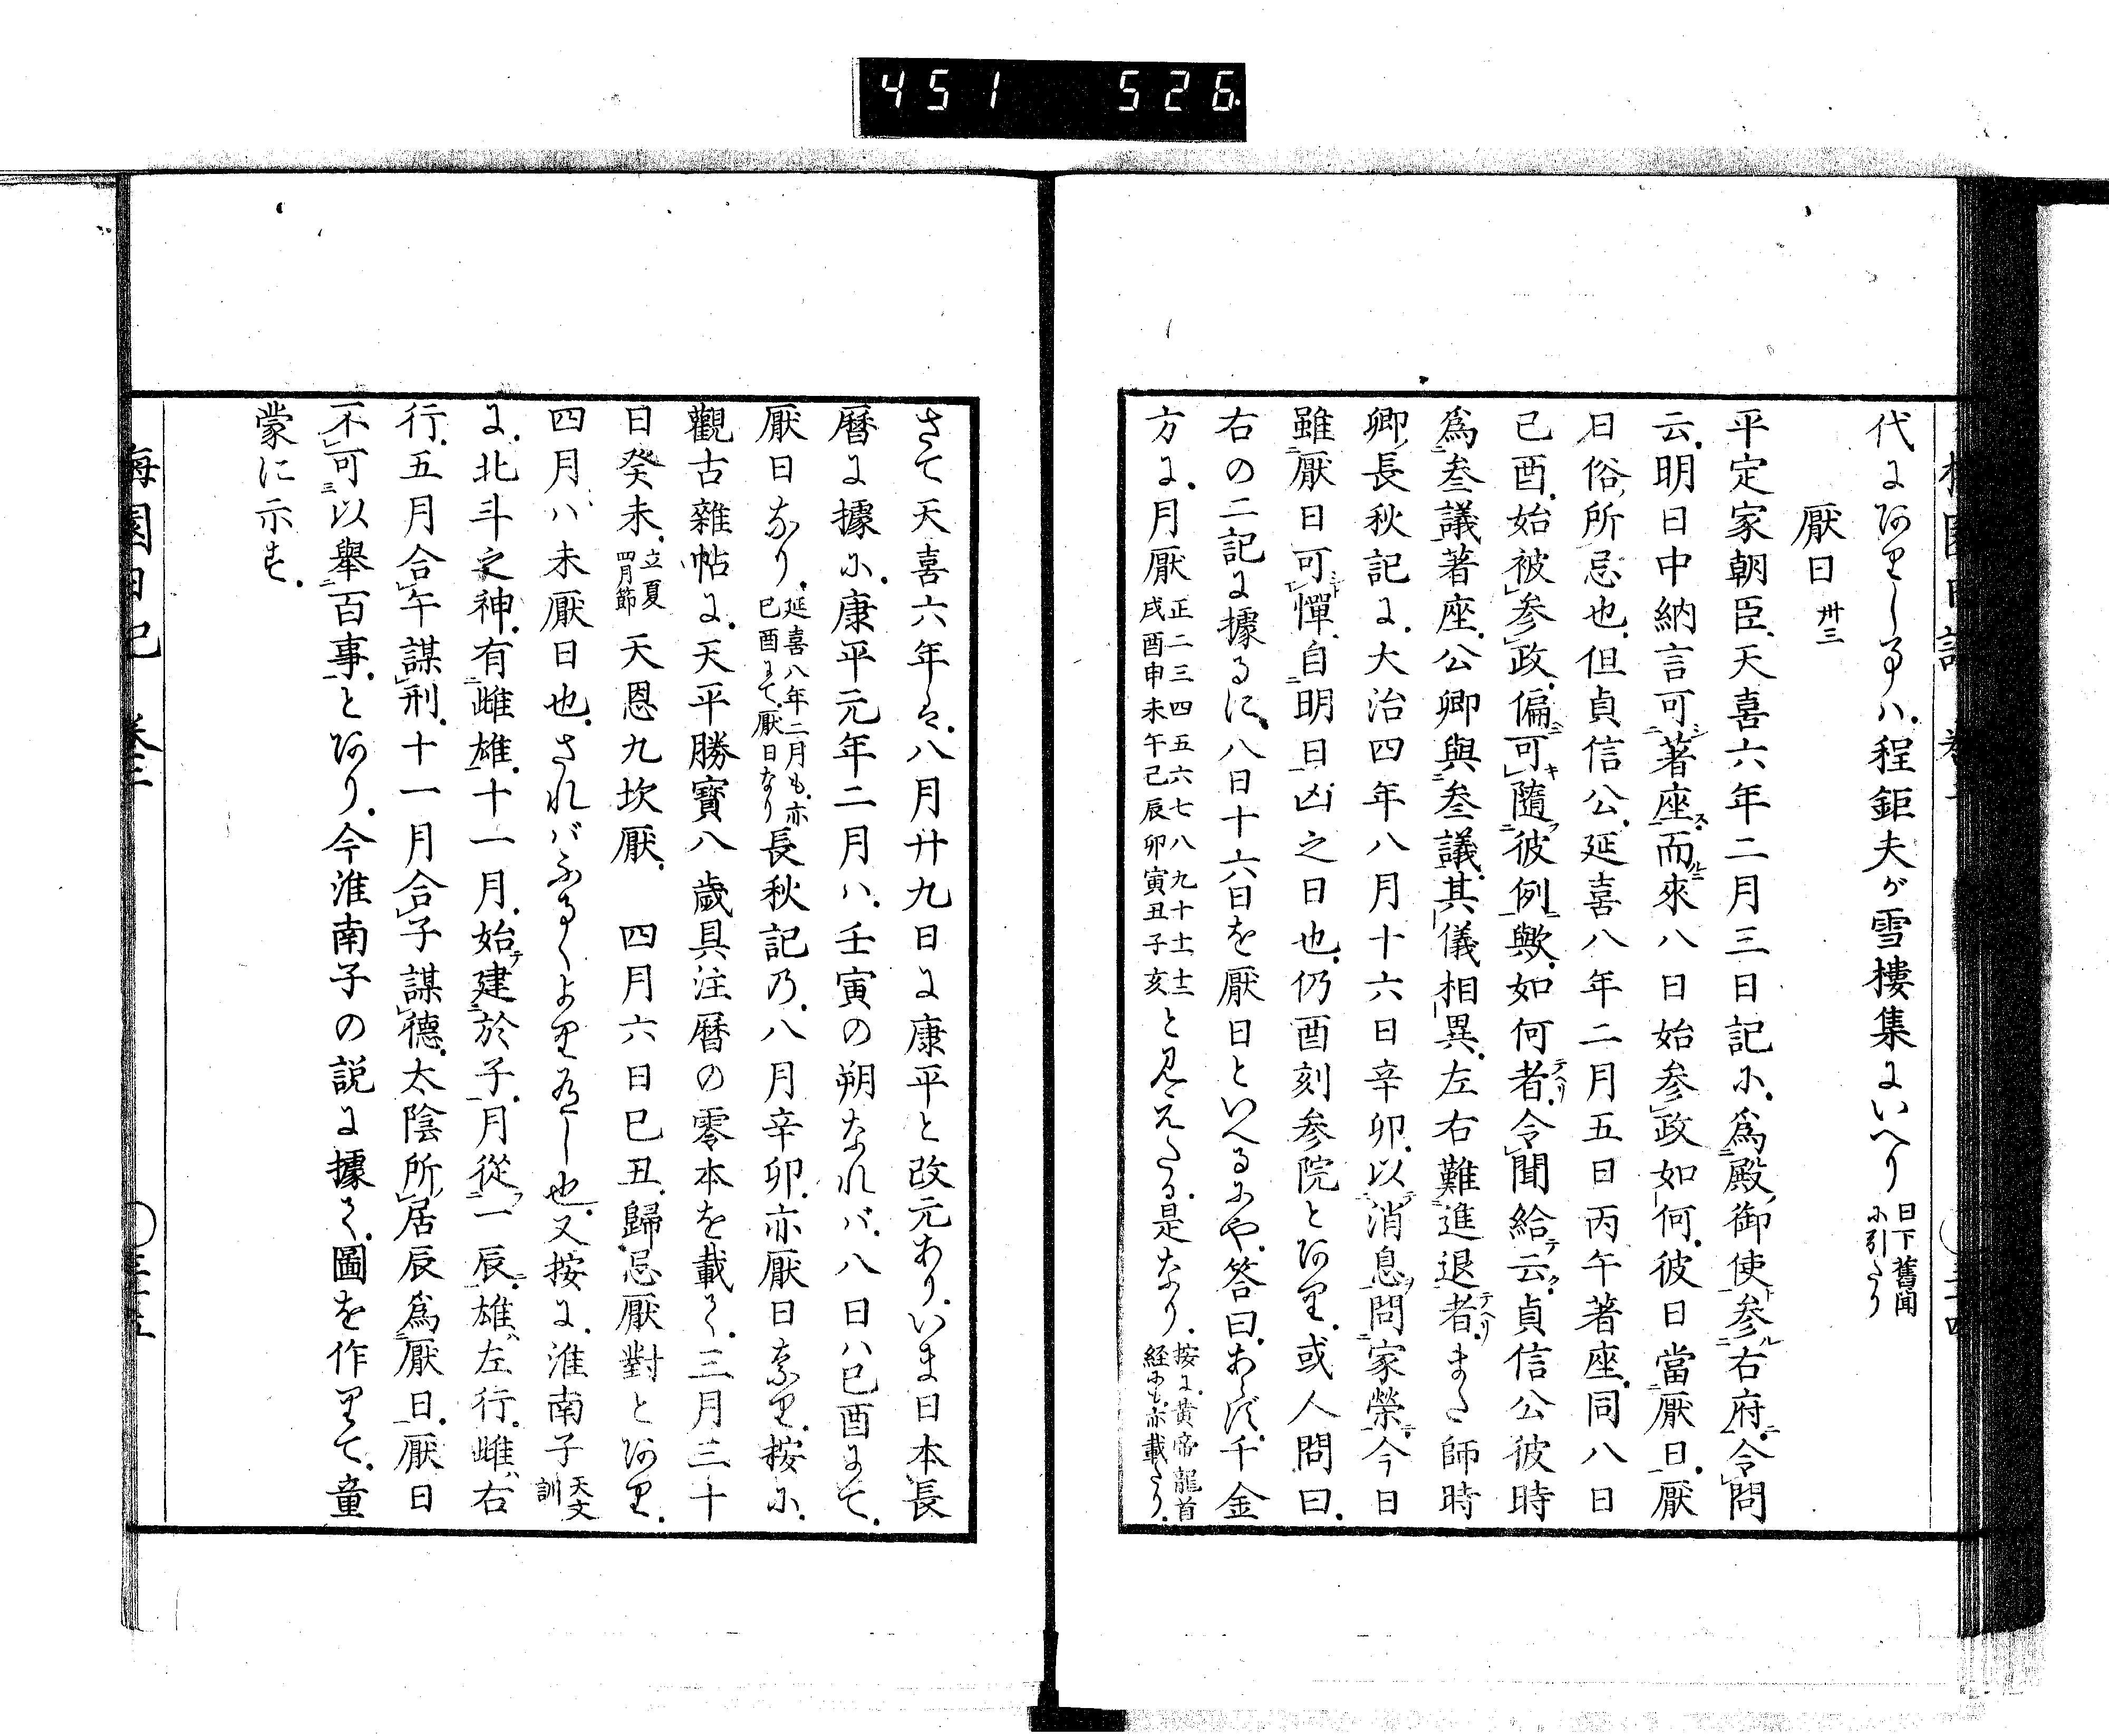 451 526
代にありし事ハ.程鉅夫が雪樓集にいへり 日下舊聞に引たり
厭日 卅三
平定家朝臣.天喜六年二月三日記に.爲殿御使参右府.令問
云.明日中納言可著座.而來八日始参政如何.彼日當厭日.厭
日俗所忌也.但貞信公.延喜八年二月五日丙午著座.同八日
己酉.始被参政.偏可隨彼例歟.如何者.令聞給云.貞信公彼時
爲叅議著座.公卿與叅議.其儀相異.左右難進退者.また師時
卿長秋記に.大治四年八月十六日辛卯.以消息問家榮.今日
雖厭日可憚.自明日凶之日也.仍酉刻参院とあり.或人問曰.
右の二記に據るに.八日十六日を厭日といへるにや.答曰.あらず.千金
方に.月厭 正二三四五六七八九十十一十二 戌酉申未午巳辰卯寅丑子亥 と見えたる.是なり.按に.黄帝龍首経にも亦載たり.
さて天喜六年は.八月廿九日に康平と改元あり.いま日本長
暦に據に.康平元年二月ハ.壬寅の朔なれバ.八日ハ己酉にて.
厭日なり.延喜八年二月も.亦己酉にて.厭日なり 長秋記乃.八月辛卯.亦厭日なり.按に.
觀古雜帖に.天平勝寶八歳具注暦の零本を載く.三月三十
日癸未.立夏四月節 天恩九坎厭. 四月六日己丑.歸忌厭對とあり.
四月ハ未厭日也.されバふるくより有し也.又按に.淮南子 天文訓
に.北斗之神.有雌雄.十一月.始建於子.月從一辰.雄左行.雌右
行.五月合午謀刑.十一月合子謀德.太陰所居辰爲厭日.厭日
不可以擧百事.とあり.今淮南子の説に據て.圖を作りて.童
蒙に示す.
梅園日記 卷二 三十五